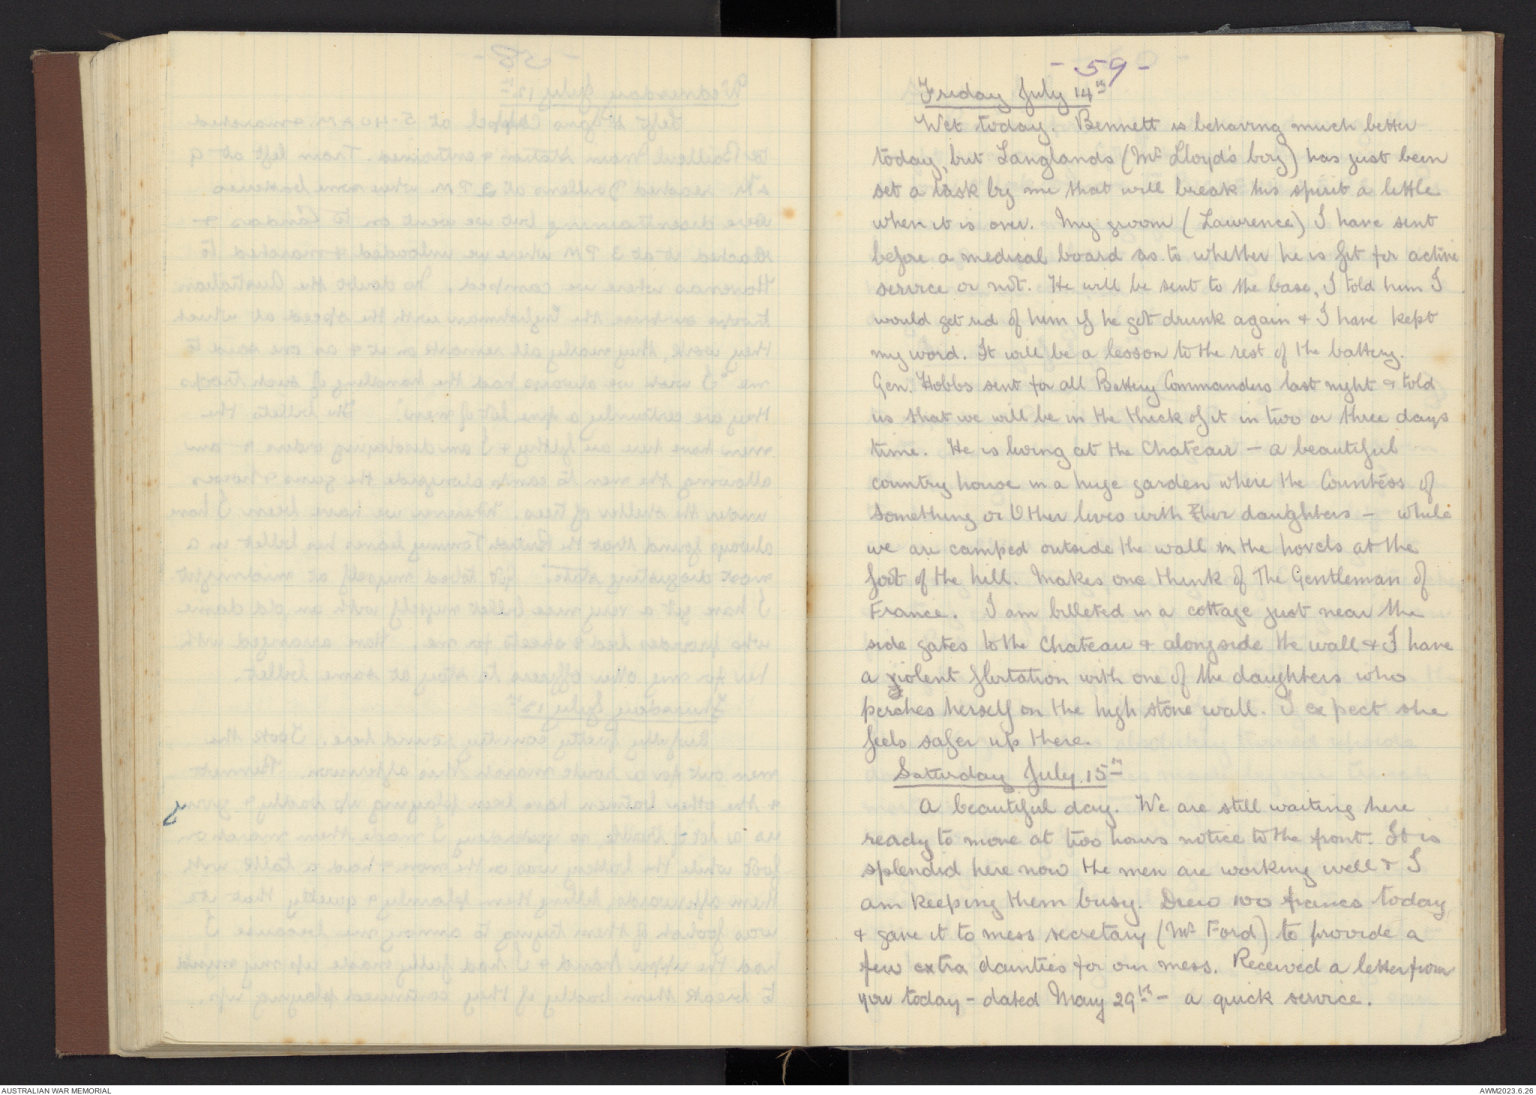 - 59 -
Friday July 14th
Wet today. Bennett is behaving much better
today, but Langlands (Mr Lloyd's boy) has just been
set a task by me that will break his spirit a little
when it is over. My groom (Lawrence) I have sent
before a medical board as to whether he is fit for active
service or not. He will be sent to the base, I told him I
would get rid of him if he got drunk again & I have kept
my word. It will be a lesson to the rest of the battery.
Gen. Hobbs sent for all Battery Commanders last night & told
us that we will be in the thick of it in two or three days
time. He is living at the Chateau - a beautiful
country house in a huge garden where the Countess of
Something or Other lives with her daughters - while
we are camped outside the wall in the hovels at the
foot of the hill. Makes one think of The Gentleman of
France. I am billeted in a cottage just near the
side gates to the Chateau & alongside the wall & I have
a violent flirtation with one of the daughters who
perches herself on the high stone wall. I expect she
feels safer up there.
Saturday July 15th
A beautiful day. We are still waiting here
ready to move at two hours notice to the front. It is
splendid here now the men are working well & I
am keeping them busy. Drew 100 francs today
& gave it to mess secretary (Mr Ford) to provide a
few extra dainties for our mess. Received a letter from
you today - dated May 29th - a quick service.
AUSTRALIAN WAR MEMORIAL
AWM2023.6.26